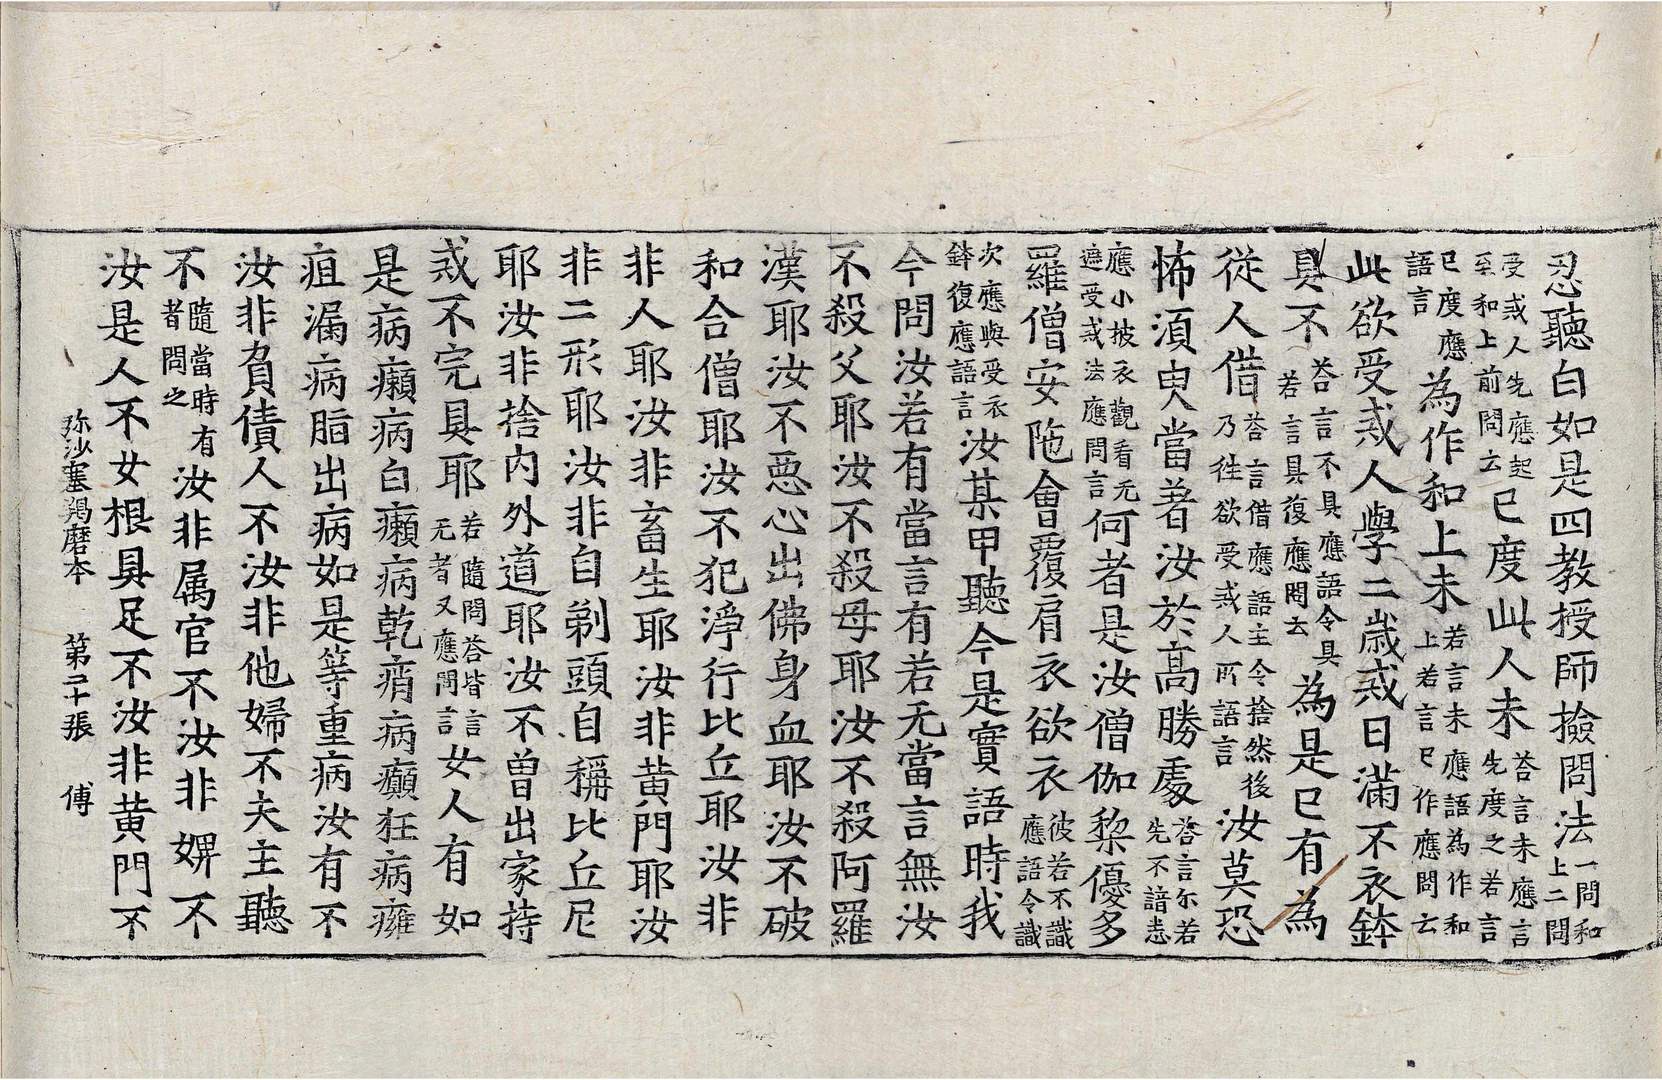 忍聽白如是四教授師撿問法一問和上二問
受戒人先應起至和上前問云已度此人未荅言未應言先度之若言
已度應語言為作和上未若言未應語為作和上若言已作應問云
此欲受戒人學二歲戒日滿不衣鉢
具不荅言不具應語令具若言具復應問云為是已有為
從人借荅言借應語主令捨然後乃往欲受戒人所語言汝莫恐
怖須臾當著汝於高勝處荅言尒若先不諳悉
應小披衣觀看无遮受戒法應問言何者是汝僧伽梨優多
羅僧安陁會覆肩衣欲衣彼若不識應語令識
次應與受衣鉢復應語言汝某甲聽今是實語時我
今問汝若有當言有若无當言無汝
不殺父耶汝不殺母耶汝不殺阿羅
漢耶汝不惡心出佛身血耶汝不破
和合僧耶汝不犯淨行比丘耶汝非
非人耶汝非畜生耶汝非黄門耶汝
非二形耶汝非自剃頭自稱比丘尼
耶汝非捨內外道耶汝不曾出家持
戒不完具耶若隨問荅皆言无者又應問言女人有如
是病癩病白癩病乾痟病癲狂病癰
疽漏病脂出病如是等重病汝有不
汝非負債人不汝非他婦不夫主聽
不隨當時有者問之汝非属官不汝非婢不
汝是人不女根具足不汝非黄門不
弥沙塞羯磨本 第二十張 傅